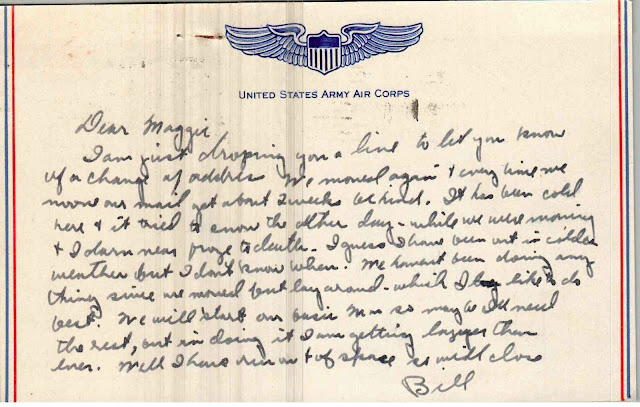 UNITED STATES ARMY AIR CORPS
Dear Maggie
I am just droping you a line to let you know
of a change of address We moved again & every time we
move our mail get about 2 weeks behind. It has been cold
here & it tried to snow the other day - while we were moving
& I darn near froze to death. I guess I have been out in colder
weather but I don't know when. We havent been doing any
thing since we moved but lay around - which I like to do
best. We will start our basic Mon so maybe I'll need
the rest, but in doing it I am getting lazier than
ever. Well I have run out of space so will close
Bill